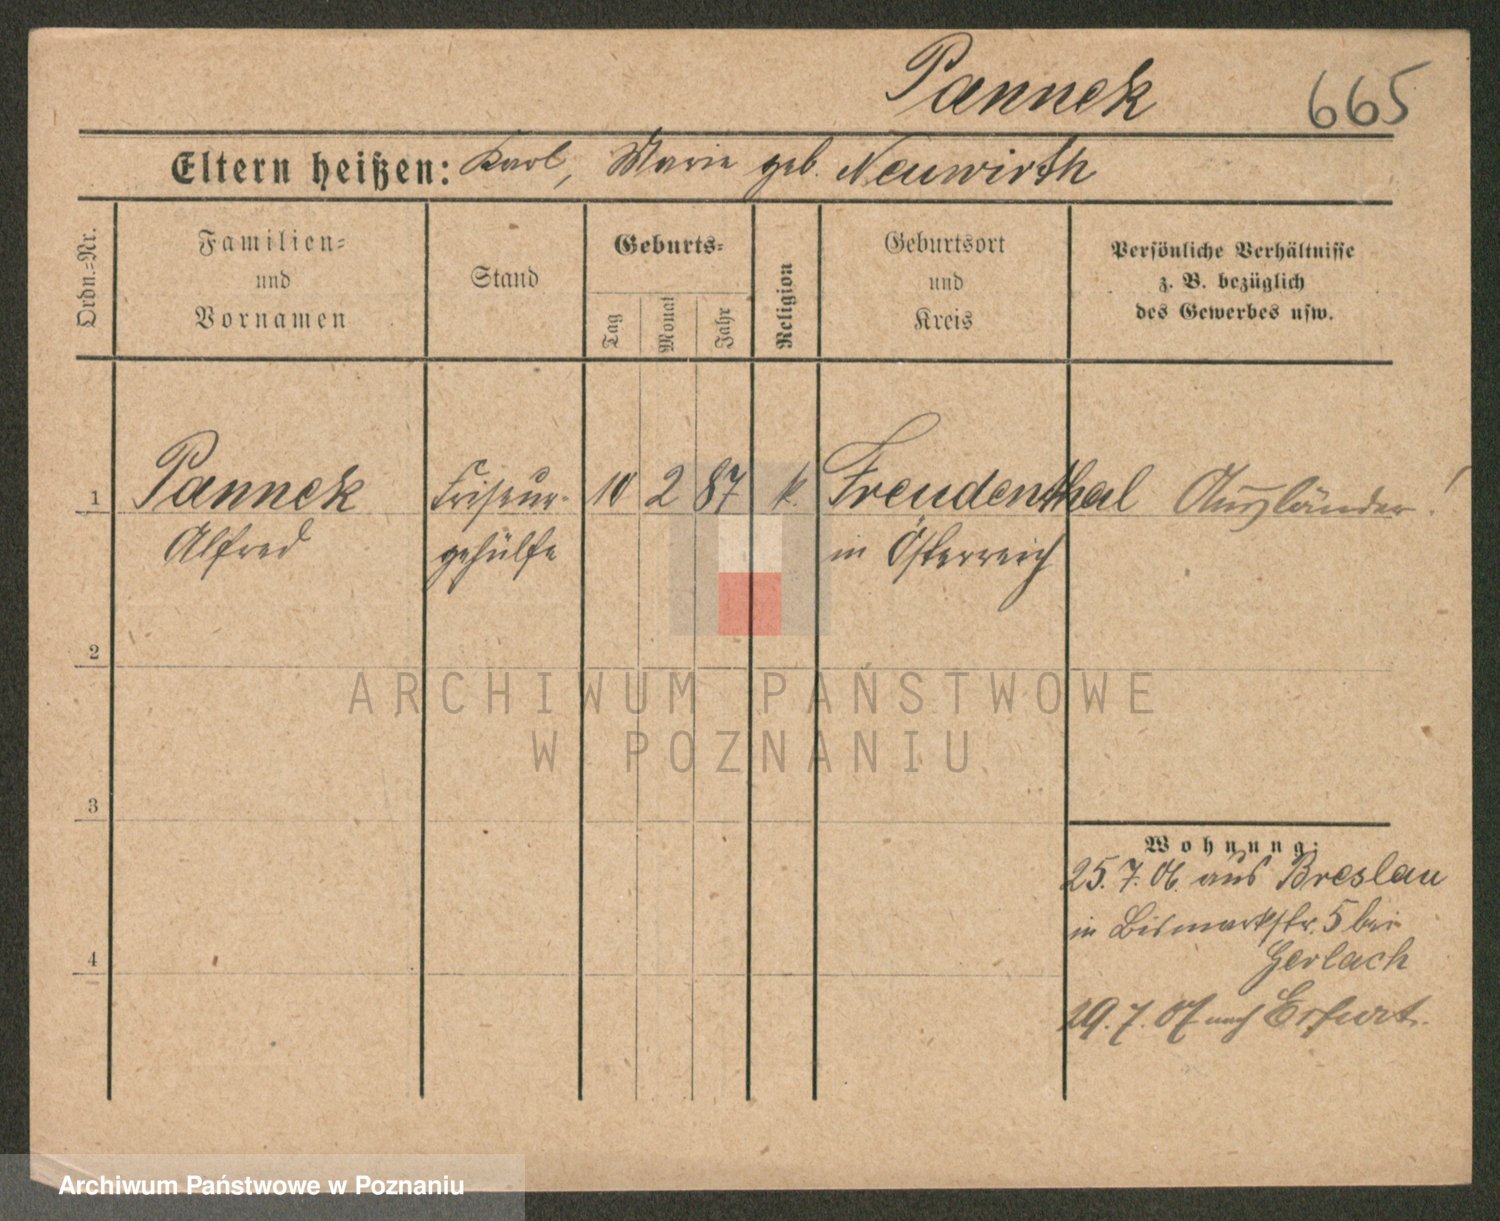 Pannek 665
Eltern heißen: Karl, Marie geb. Neuwirth
Ordn.=Nr.
Familien=
und
Vornamen
Stand
Geburts=
Tag
Monat
Jahr
Religion
Geburtsort
und
Kreis
Persönliche Verhältnisse
z. B. bezüglich
des Gewerbes usw.
1 Pannek Friseur- 10 2 87 k. Freudenthal Ausländer!
Alfred gehülfe in Österreich
2
3
4
Wohnung:
25. 7. 06. aus Breslau
in Bismarkstr. 5 bei
Gerlach
29. 7. 07 nach Erfurt.
ARCHIWUM PAŃSTWOWE
W POZNANIU
Archiwum Państwowe w Poznaniu